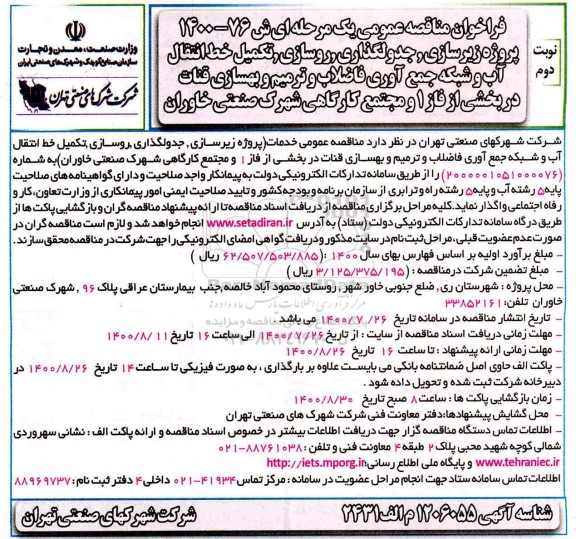 وزارت صنعت، معدن و تجارت
سازمان صنایع کوچک و شهرکهای صنعتی ایران
شرکت شهرکهای صنعتی تهران
فراخوان مناقصه عمومی یک مرحله‌ای ش ۷۶-۱۴۰۰
پروژه زیرسازی ,جدولگذاری ,روسازی ,تکمیل خط انتقال
آب و شبکه جمع آوری فاضلاب و ترمیم و بهسازی قنات
در بخشی از فاز ۱ و مجتمع کارگاهی شهرک صنعتی خاوران
نوبت
دوم
شرکت شهرکهای صنعتی تهران در نظر دارد مناقصه عمومی خدمات(پروژه زیرسازی , جدولگذاری ,روسازی ,تکمیل خط انتقال
آب و شبکه جمع آوری فاضلاب و ترمیم و بهسازی قنات در بخشی از فاز ۱ و مجتمع کارگاهی شهرک صنعتی خاوران)به شماره
(۲۰۰۰۰۰۱۰۵۱۰۰۰۰۷۶) را از طریق سامانه تدارکات الکترونیکی دولت به پیمانکار واجد صلاحیت و دارای گواهینامه های صلاحیت
پایه۵ رشته آب و پایه۵ رشته راه و ترابری از سازمان برنامه و بودجه کشور و تایید صلاحیت ایمنی امور پیمانکاری از وزارت تعاون، کار و
رفاه اجتماعی واگذار نماید.کلیه مراحل برگزاری مناقصه از دریافت اسناد مناقصه تا ارائه پیشنهاد مناقصه گران و بازگشایی پاکت ها از
طریق درگاه سامانه تدارکات الکترونیکی دولت(ستاد) به آدرس www.setadiran.ir انجام خواهد شد و لازم است مناقصه گران در
صورت عدم عضویت قبلی، مراحل ثبت نام در سایت مذکور و دریافت گواهی امضای الکترونیکی را جهت شرکت در مناقصه محقق سازند.
- مبلغ برآورد اولیه بر اساس فهارس بهای سال ۱۴۰۰ :(۶۲/۵۰۷/۵۰۳/۸۸۵ ریال )
- مبلغ تضمین شرکت در مناقصه : (۳/۱۲۵/۳۷۵/۱۹۵ ریال )
- محل پروژه : شهرستان ری , ضلع جنوبی خاور شهر, روستای محمود آباد خالصه,جنب بیمارستان عراقی پلاک ۹۶ , شهرک صنعتی
خاوران تلفن: ۳۳۸۵۲۱۶۱
- تاریخ انتشار مناقصه در سامانه تاریخ ۱۴۰۰/۷/۲۶ می باشد
- مهلت زمانی دریافت اسناد مناقصه از سایت : از تاریخ ۱۴۰۰/۷/۲۶ الی ساعت ۱۶ تاریخ ۱۴۰۰/۸/۱۱
- مهلت زمانی ارائه پیشنهاد : تا ساعت ۱۶ تاریخ ۱۴۰۰/۸/۲۶
- پاکت الف حاوی اصل ضمانتنامه بانکی می بایست علاوه بر بارگذاری , به صورت فیزیکی تا ساعت ۱۴ تاریخ ۱۴۰۰/۸/۲۶ در
دبیرخانه شرکت ثبت شده و تحویل داده شود .
- زمان بازگشایی پاکت ها : ساعت ۸ صبح تاریخ ۱۴۰۰/۸/۳۰
- محل گشایش پیشنهادها:دفتر معاونت فنی شرکت شهرک های صنعتی تهران
- اطلاعات تماس دستگاه مناقصه گزار جهت دریافت اطلاعات بیشتر در خصوص اسناد مناقصه و ارائه پاکت الف : نشانی سهروردی
شمالی کوچه شهید محبی پلاک ۲ طبقه ۴ معاونت فنی و تلفن : ۸۸۷۶۱۰۳۸-۰۲۱
www.tehraniec.ir و پایگاه ملی اطلاع رسانی:http://iets.mporg.ir
اطلاعات تماس سامانه ستاد جهت انجام مراحل عضویت در سامانه : مرکز تماس ۴۱۹۳۴-۰۲۱ داخلی ۴ دفتر ثبت نام : ۸۸۹۶۹۷۳۷
شناسه آگهی ۱۲۰۶۰۵۵ م الف ۲۴۳۱
شرکت شهرکهای صنعتی تهران